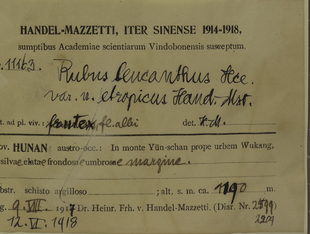 HANDEL-MAZZETTI, ITER SINENSE 1914-1918,
sumptibus Academiae scientiarum Vindobonensis susceptum.
11163. Rubus leucanthus Hce.
var. n. etropicus Hand.-Mzt.
t. ad pl. viv.: frutex, fl. albi det. H.M.
ov. HUNAN austro-occ.: In monte Yün-schan prope urbem Wukang,
silvae elatae frondosae umbrosae margine.
bstr. schisto argilloso ; alt. s. m. ca. 1190 m.
g. 9. VII. 1917 Dr. Heinr. Frh. v. Handel-Mazzetti. (Diar. Nr.
12. VI. 1918